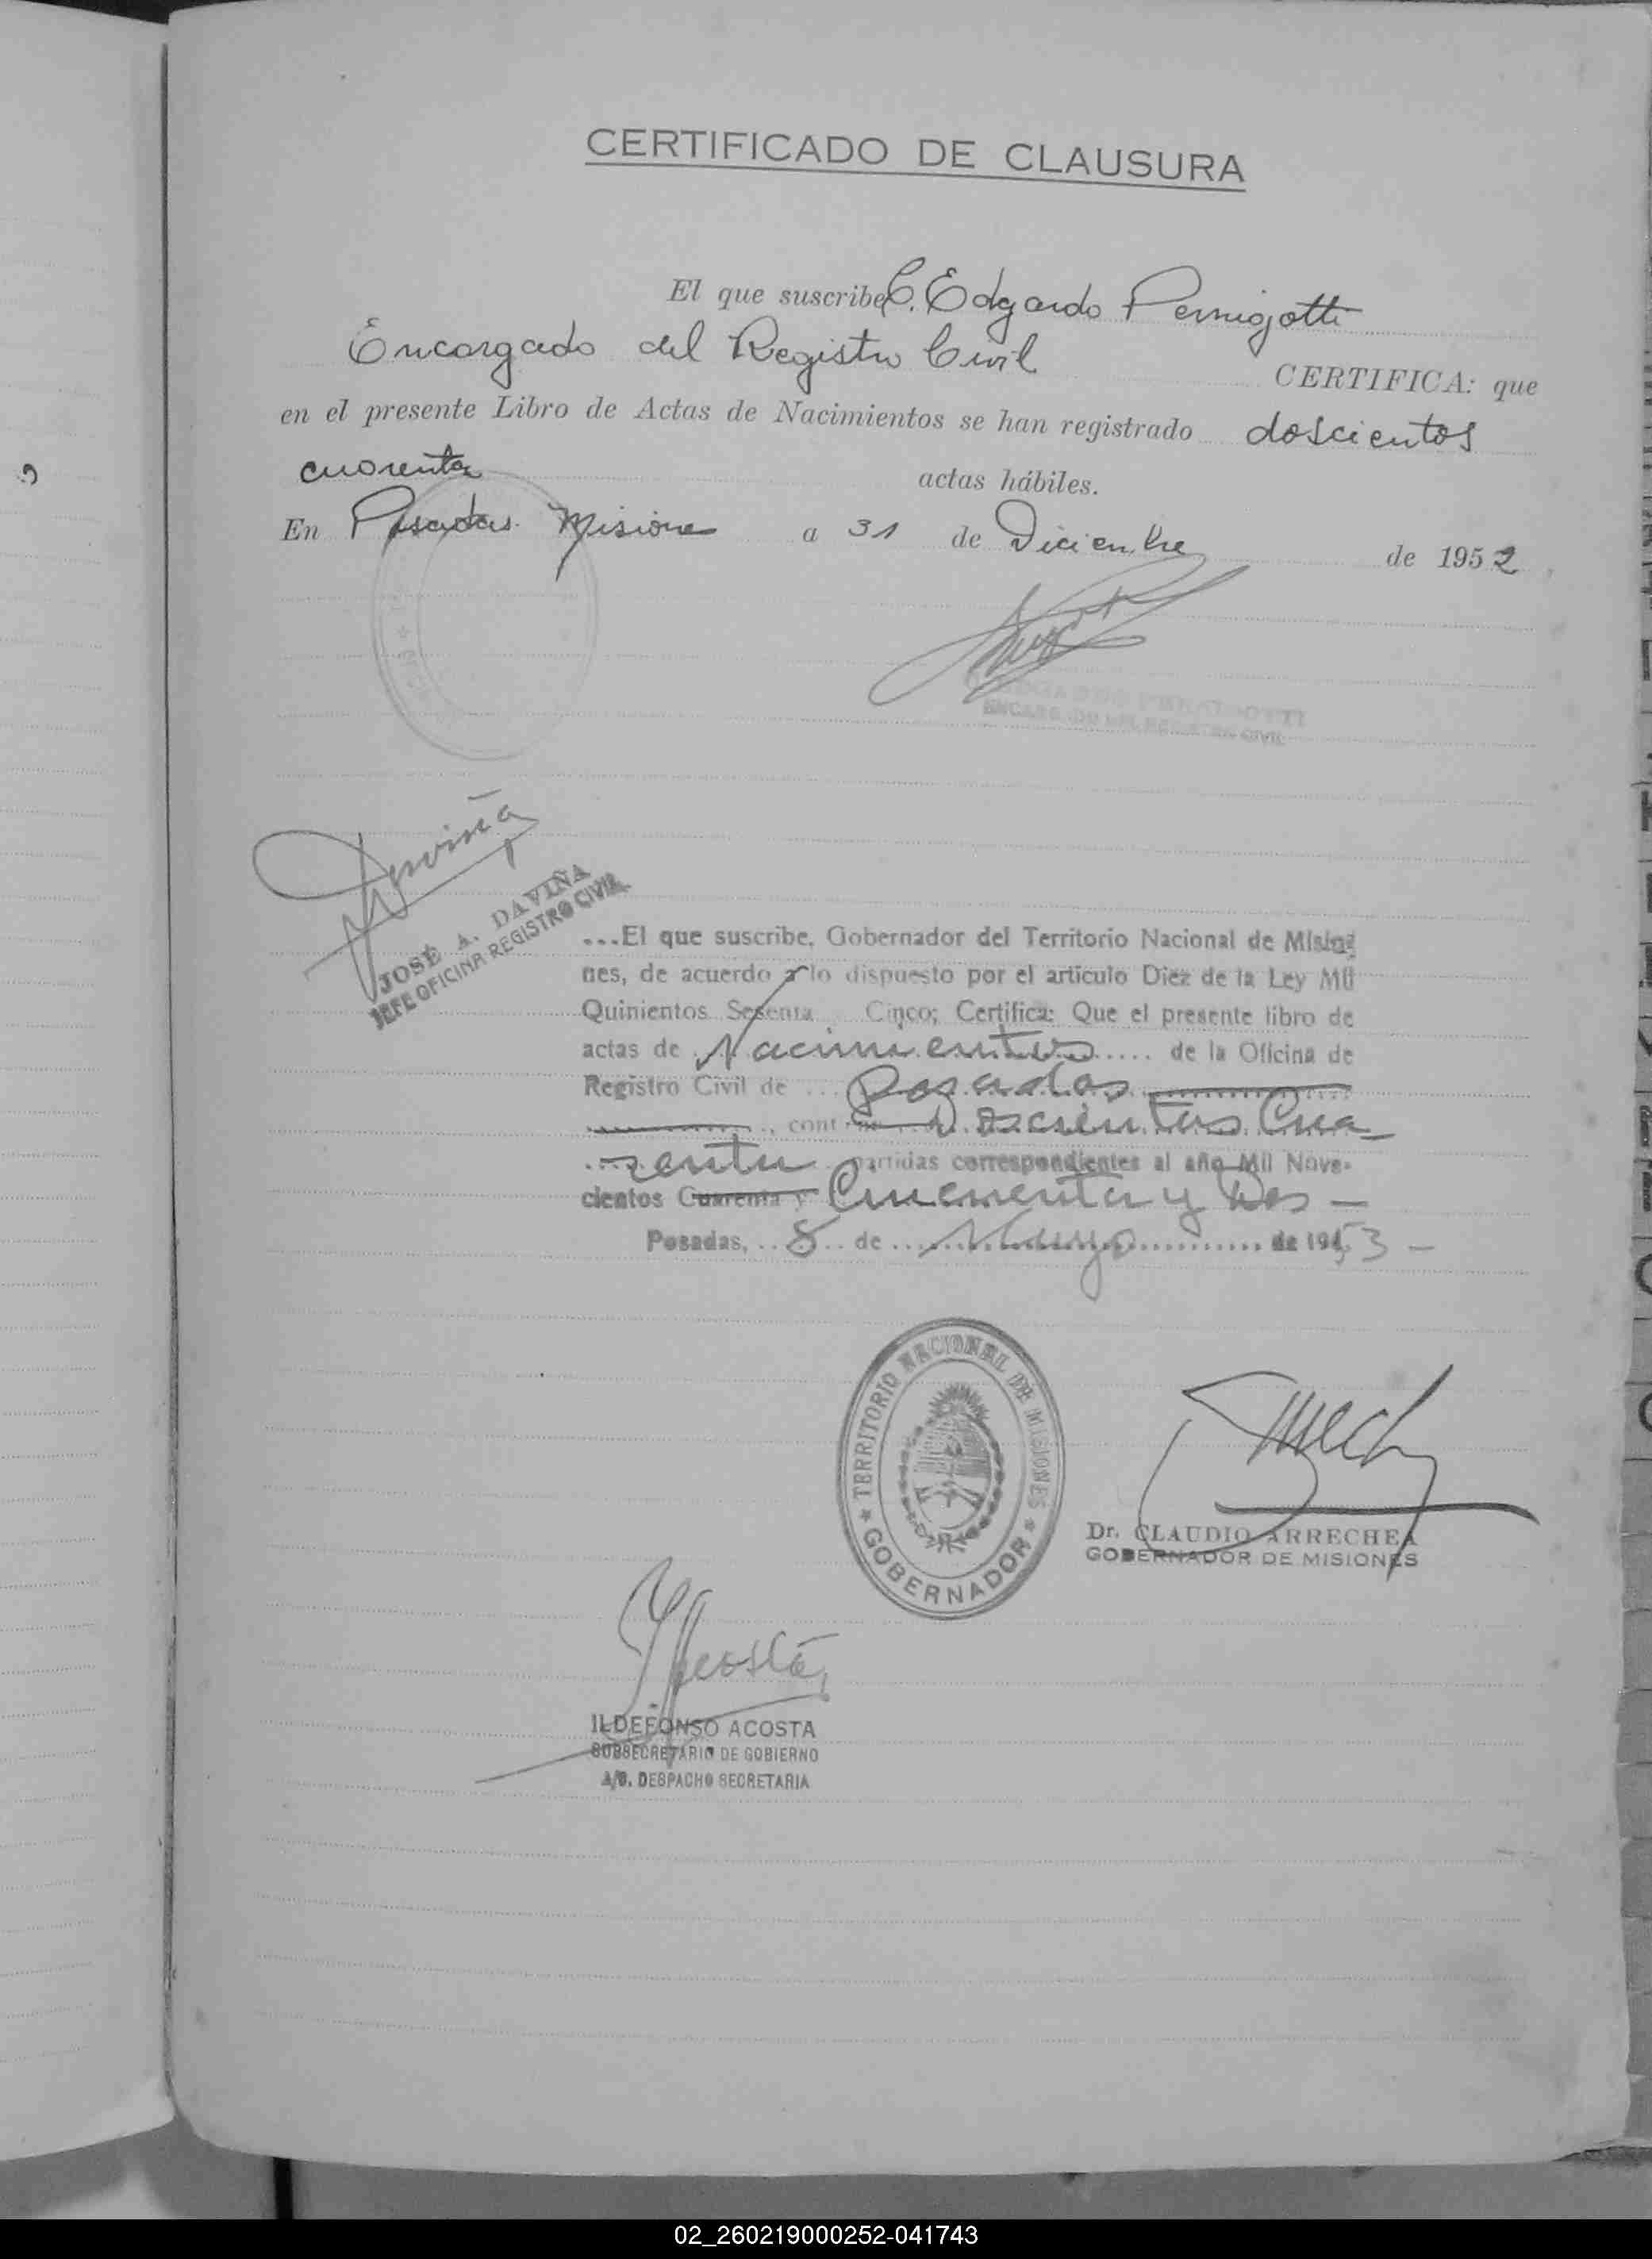 CERTIFICADO DE CLAUSURA
El que suscribe C. Edgardo Pernigotti
Encargado del Registro Civil
CERTIFICA: que
en el presente Libro de Actas de Nacimientos se han registrado doscientos
cuarenta actas hábiles.
En Posadas Misiones a 31 de Diciembre de 1952
ENCARGADO DEL REGISTRO CIVIL
Daviña
JOSÉ A. DAVIÑA
JEFE OFICINA REGISTRO CIVIL
...El que suscribe, Gobernador del Territorio Nacional de Misio-
nes, de acuerdo a lo dispuesto por el artículo Diez de la Ley Mil
Quinientos Sesenta Cinco; Certifica: Que el presente libro de
actas de Nacimientos ..... de la Oficina de
Registro Civil de ... Posadas
Doscientos Cua
renta partidas correspondientes al año Mil Nove-
cientos Cuarenta y Cincuenta y Dos —
Posadas, ..8.. de ... Mayo ............ de 1953 —
★ TERRITORIO NACIONAL DE MISIONES ★
GOBERNADOR
Dr. CLAUDIO ARRECHEA
GOBERNADOR DE MISIONES
Acosta
ILDEFONSO ACOSTA
SUBSECRETARIO DE GOBIERNO
A/C. DESPACHO SECRETARIA
02_260219000252-041743